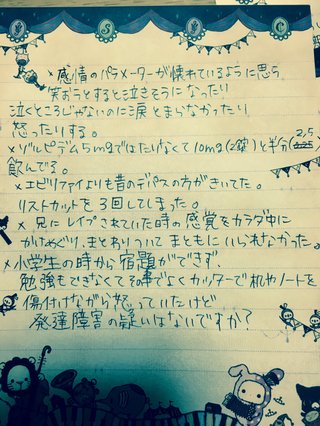 ×感情のパラメーターが壊れているように思う
笑おうとすると泣きそうになったり
泣くところじゃないのに涙とまらなかったり
怒ったりする。
×ゾルピデム5mgではたりなくて10mg(2錠)と半分(2,5
飲んでる。
×エビリファイよりも昔のデパスの方がきいてた。
リストカットを3回してしまった。
×兄にレイプされていた時の感覚をカラダ中に
かけめぐり、まとわりついてまともにいられなかった。
×小学生の時から宿題ができず、
勉強もできなくてその事でよくカッターで机やノートを
傷付けながら怒っていたけど
発達障害の疑いはないですか?